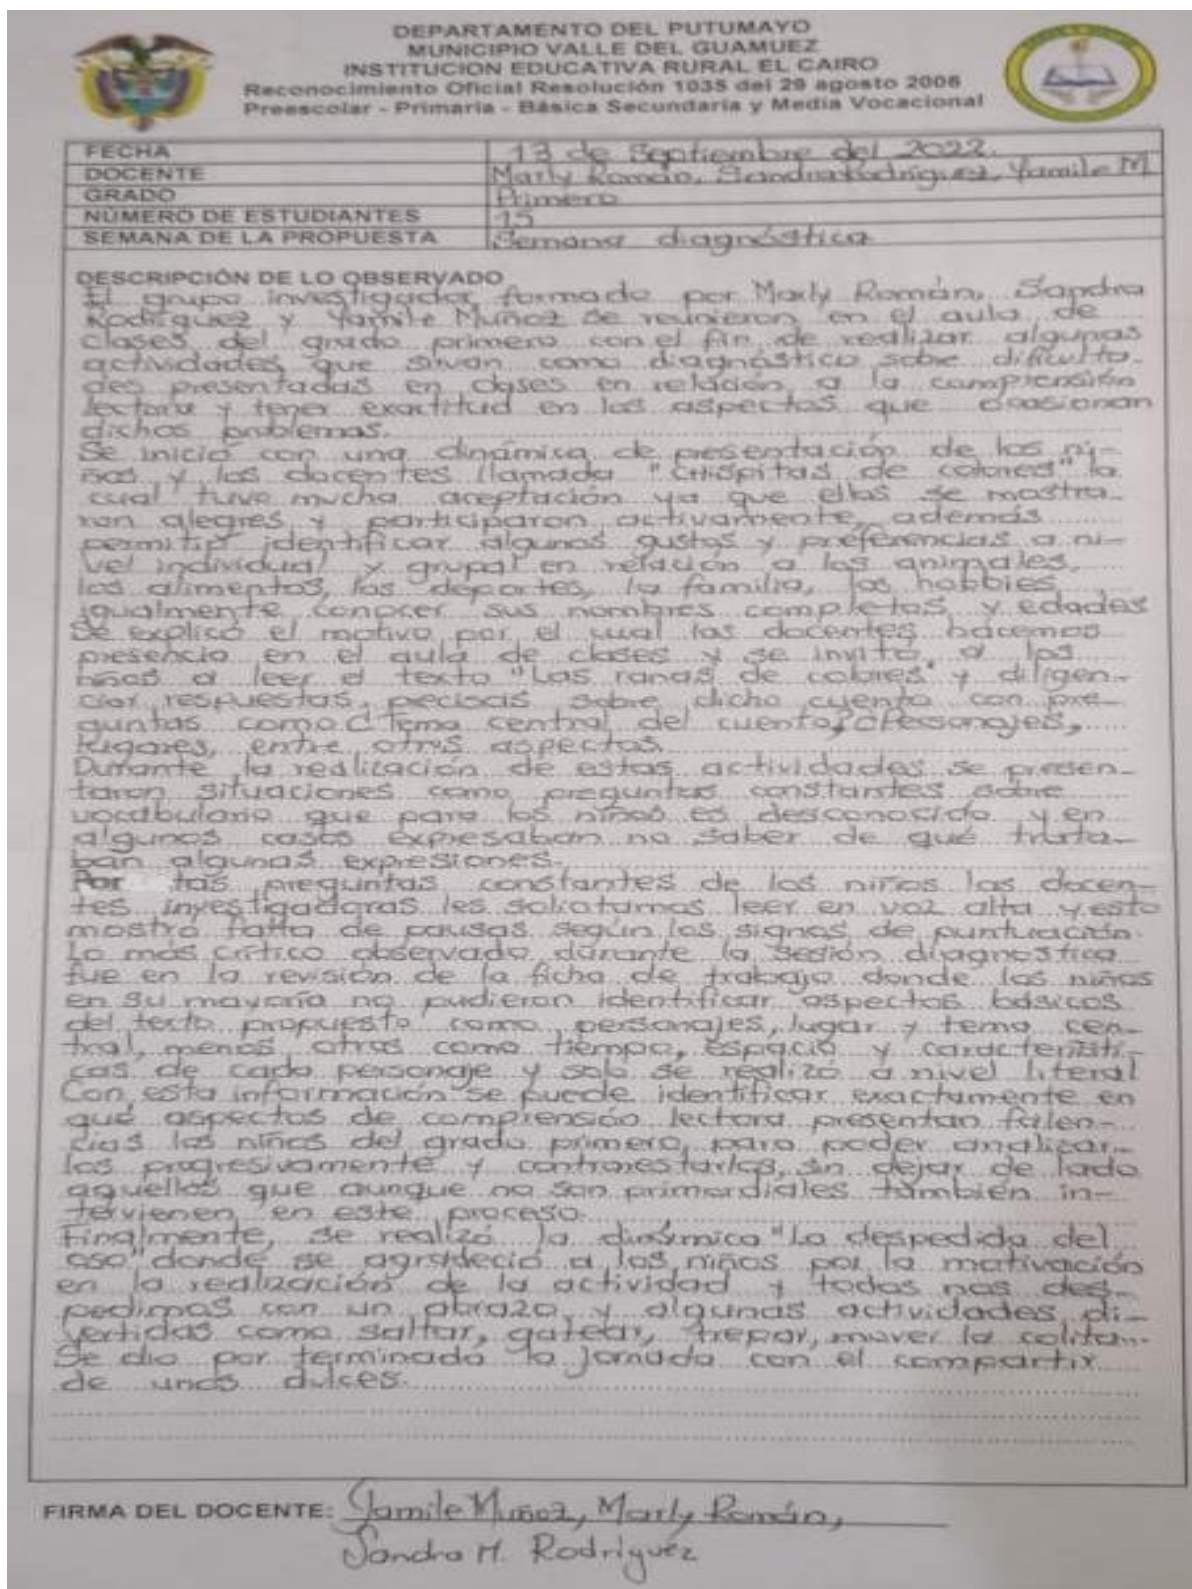 DEPARTAMENTO DEL PUTUMAYO
MUNICIPIO VALLE DEL GUAMUEZ
INSTITUCION EDUCATIVA RURAL EL CAIRO
Reconocimiento Oficial Resolución 1035 del 29 agosto 2006
Preescolar - Primaria - Básica Secundaria y Media Vocacional
FECHA 13 de Septiembre del 2022.
DOCENTE Marly Román, Sandra Rodríguez, Yamile M
GRADO Primero
NÚMERO DE ESTUDIANTES 15
SEMANA DE LA PROPUESTA Semana diagnóstica
DESCRIPCIÓN DE LO OBSERVADO
El grupo investigador formado por Marly Román, Sandra
Rodríguez y Yamile Muñoz se reunieron en el aula de
clases del grado primero con el fin de realizar algunas
actividades que sirvan como diagnóstico sobre dificulta-
des presentadas en clases en relación a la comprensión
lectora y tener exactitud en los aspectos que ocasionan
dichos problemas.
Se inició con una dinámica de presentación de los ni-
ños y los docentes llamada "Chispitas de colores" la
cual tuvo mucha aceptación ya que ellos se mostra-
ron alegres y participaron activamente, además
permitió identificar algunos gustos y preferencias a ni-
vel individual y grupal en relación a los animales,
los alimentos, los deportes, la familia, los hobbies
igualmente conocer sus nombres completos y edades
Se explicó el motivo por el cual las docentes hacemos
presencia en el aula de clases y se invitó a los
niños a leer el texto "Las ranas de colores" y diligen-
ciar respuestas pecisas sobre dicho cuento con pre-
guntas como ¿Tema central del cuento?, ¿Personajes,
lugares, entre otros aspectos.
Durante la realización de estas actividades se presen-
taron situaciones como preguntas constantes sobre
vocabulario que para los niños es desconocido y en
algunos casos expresaban no saber de qué trata-
ban algunas expresiones.
Por las preguntas constantes de los niños las docen-
tes investigadoras les solicitamos leer en voz alta y esto
mostró falta de pausas según los signos de puntuación.
Lo más crítico observado durante la sesión diagnóstica
fue en la revisión de la ficha de trabajo donde los niños
en su mayoría no pudieron identificar aspectos básicos
del texto propuesto como personajes, lugar y tema cen-
tral, menos otros como tiempo, espacio y característi-
cas de cada personaje y solo se realizó a nivel literal
Con esta información se puede identificar exactamente en
qué aspectos de comprensión lectora presentan falen-
cias los niños del grado primero, para poder analizar-
los progresivamente y contrarestarlos, sin dejar de lado
aquellos que aunque no son primordiales también in-
tervienen en este proceso.
Finalmente, se realizó la dinámica "La despedida del
oso" donde se agradeció a los niños por la motivación
en la realización de la actividad y todos nos des-
pedimos con un abrazo y algunas actividades di-
vertidas como saltar, gatear, trepar, mover la colita.
Se dio por terminada la jornada con el compartir
de unos dulces.
FIRMA DEL DOCENTE: Yamile Muñoz, Marly Román,
Sandra M. Rodríguez